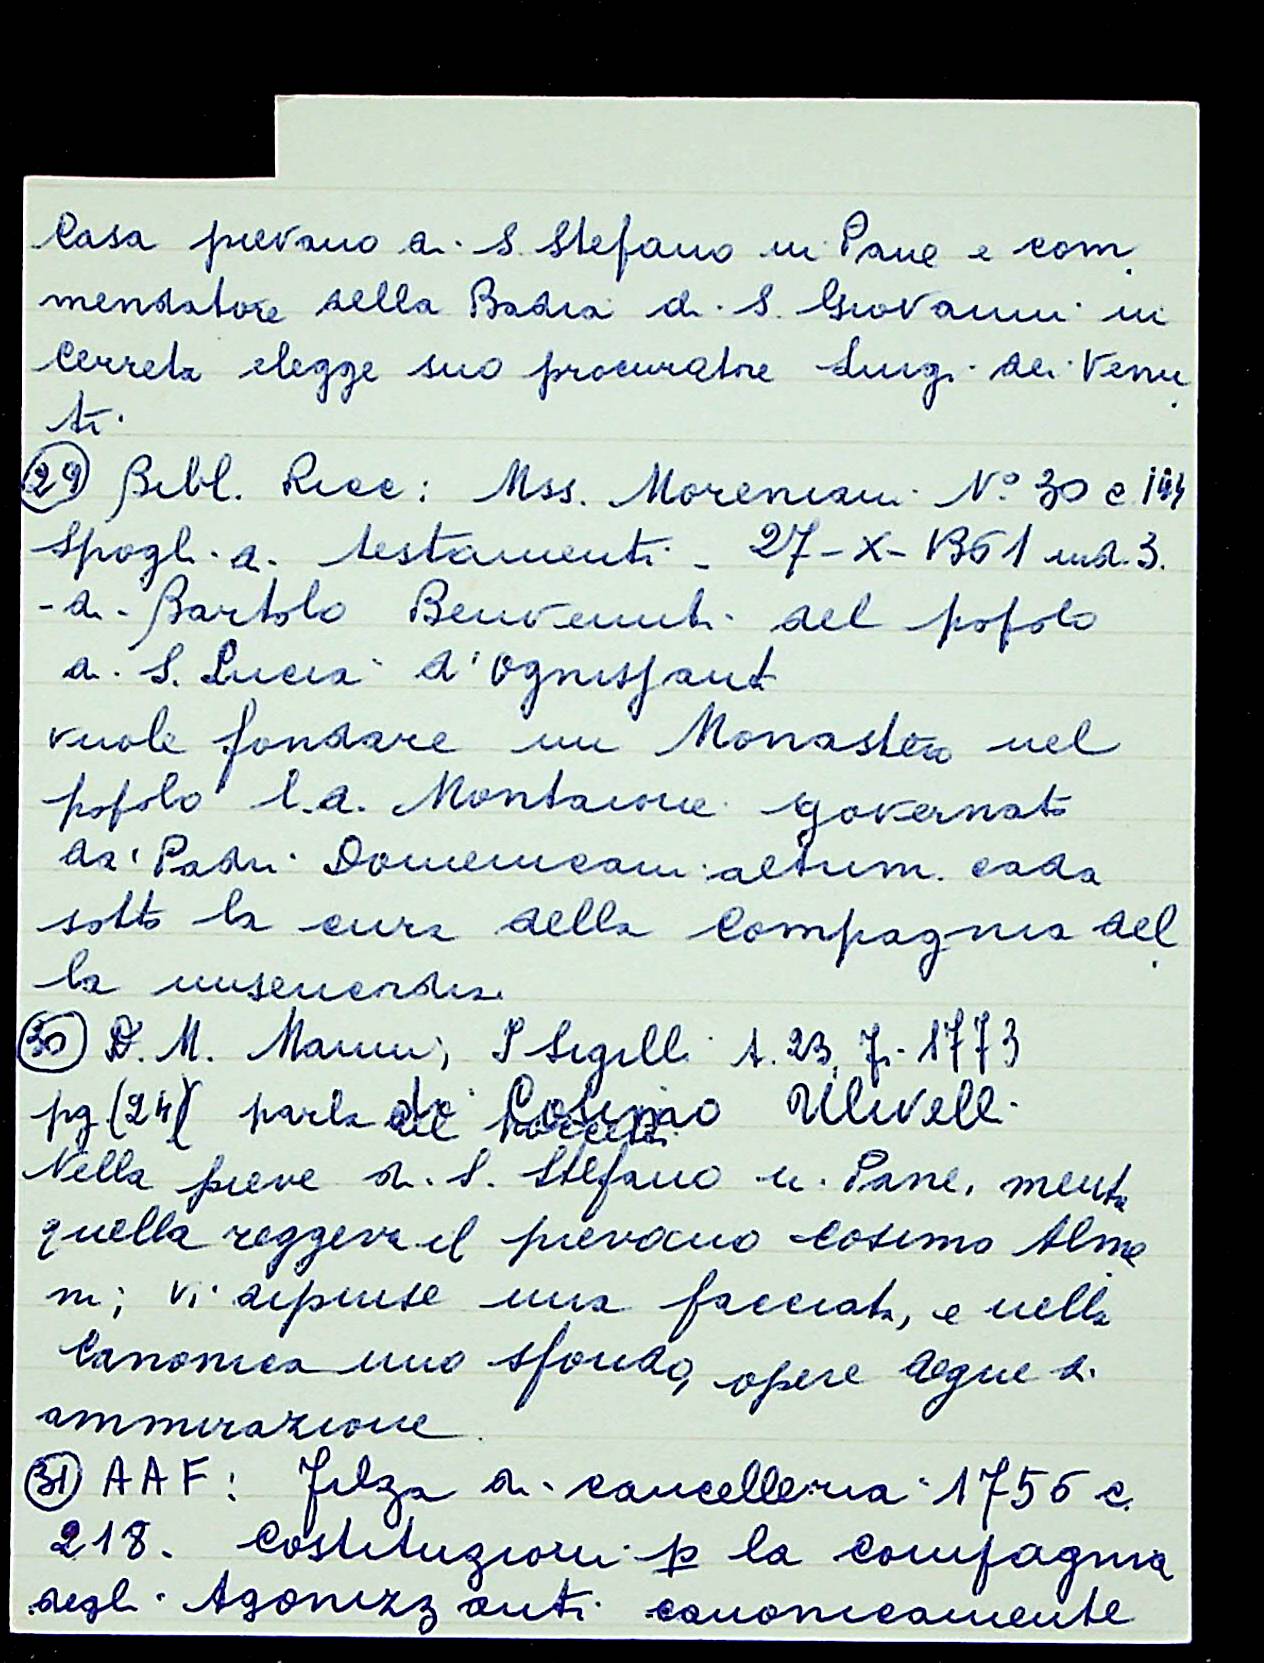 Casa pievano di S. Stefano in Pane e com
mendatore della Badia di S. Giovanni in
Cerreta elegge suo procuratore Luigi dei Venu
ti.
(29) Bibl. Ricc: Mss. Moreniani N° 30 c. 144
Spogli di testamenti - 27-X-1361 ind. 3.
- di Bartolo Benvenuti del popolo
di S. Lucia d'Ognissanti
vuole fondare un Monastero nel
popolo l.d. Montaione governato
da' Padri Domenicani altrim. cada
sotto la cura della Compagnia del
la misericordia.
(30) D. M. Manni, I Sigilli t. 23, Fi. 1773
pg (24) parla di Cosimo Ulivelli
Nella pieve di S. Stefano in Pane, mentre
quella reggeva il pievano Cosimo Alme
ni; vi dipinse una facciata, e nella
Canonica uno sfondo, opere degne di
ammirazione.
(31) AAF: Filza di cancelleria 1756 c.
218. Costituzioni p la compagnia
degli Agonizzanti canonicamente